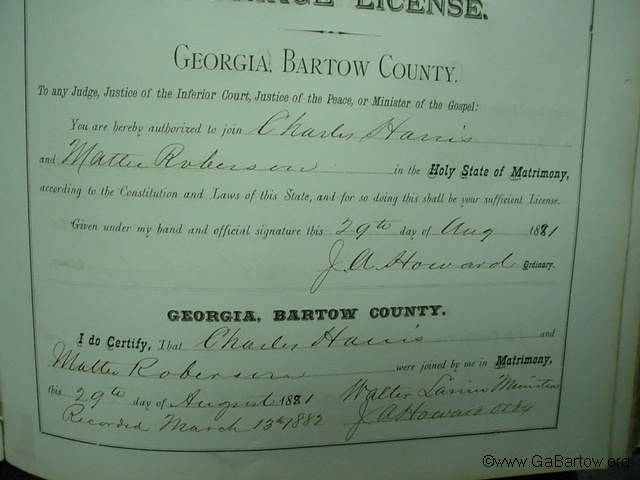 LICENSE.
GEORGIA, BARTOW COUNTY.
To any Judge, Justice of the Inferior Court, Justice of the Peace, or Minister of the Gospel:
You are hereby authorized to join Charles Harris
and Mattie Roberson in the Holy State of Matrimony,
according to the Constitution and Laws of this State, and for so doing this shall be your sufficient License.
Given under my hand and official signature this 29th day of Aug 1881
J A Howard Ordinary.
GEORGIA, BARTOW COUNTY.
I do Certify, That Charles Harris and
Mattie Roberson were joined by me in Matrimony,
this 29th day of August 1881 Walter Minister
Recorded March 13th 1882 J A Howard Ordy
©www.GaBartow.org